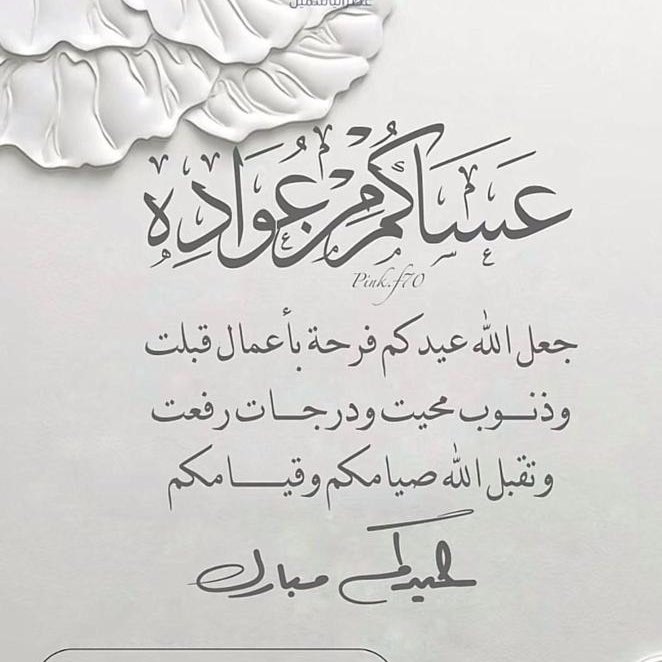 عَسَاكُم مِّنْ عُوَّادِه
Pink.f70
جعل الله عيدكم فرحة بأعمال قبلت
وذنوب محيت ودرجات رفعت
وتقبل الله صيامكم وقيامكم
عيدكم مبارك